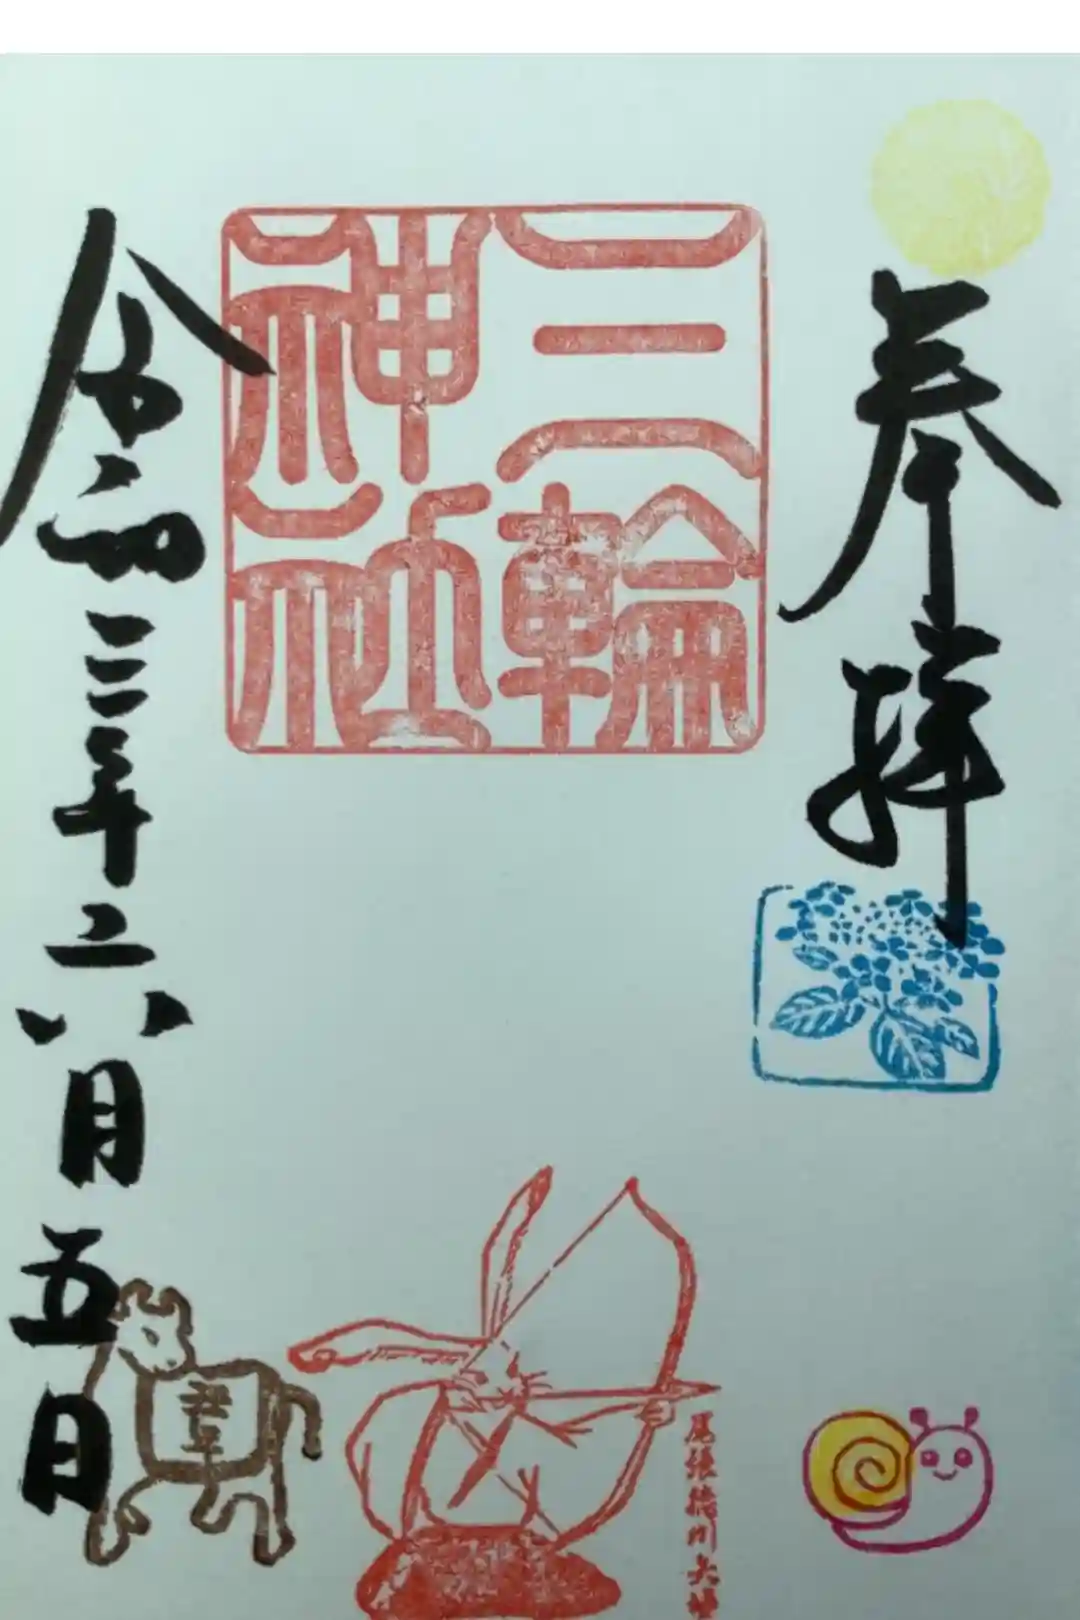 奉拝
三輪
神社
尾張徳川矢場
令和三年六月五日